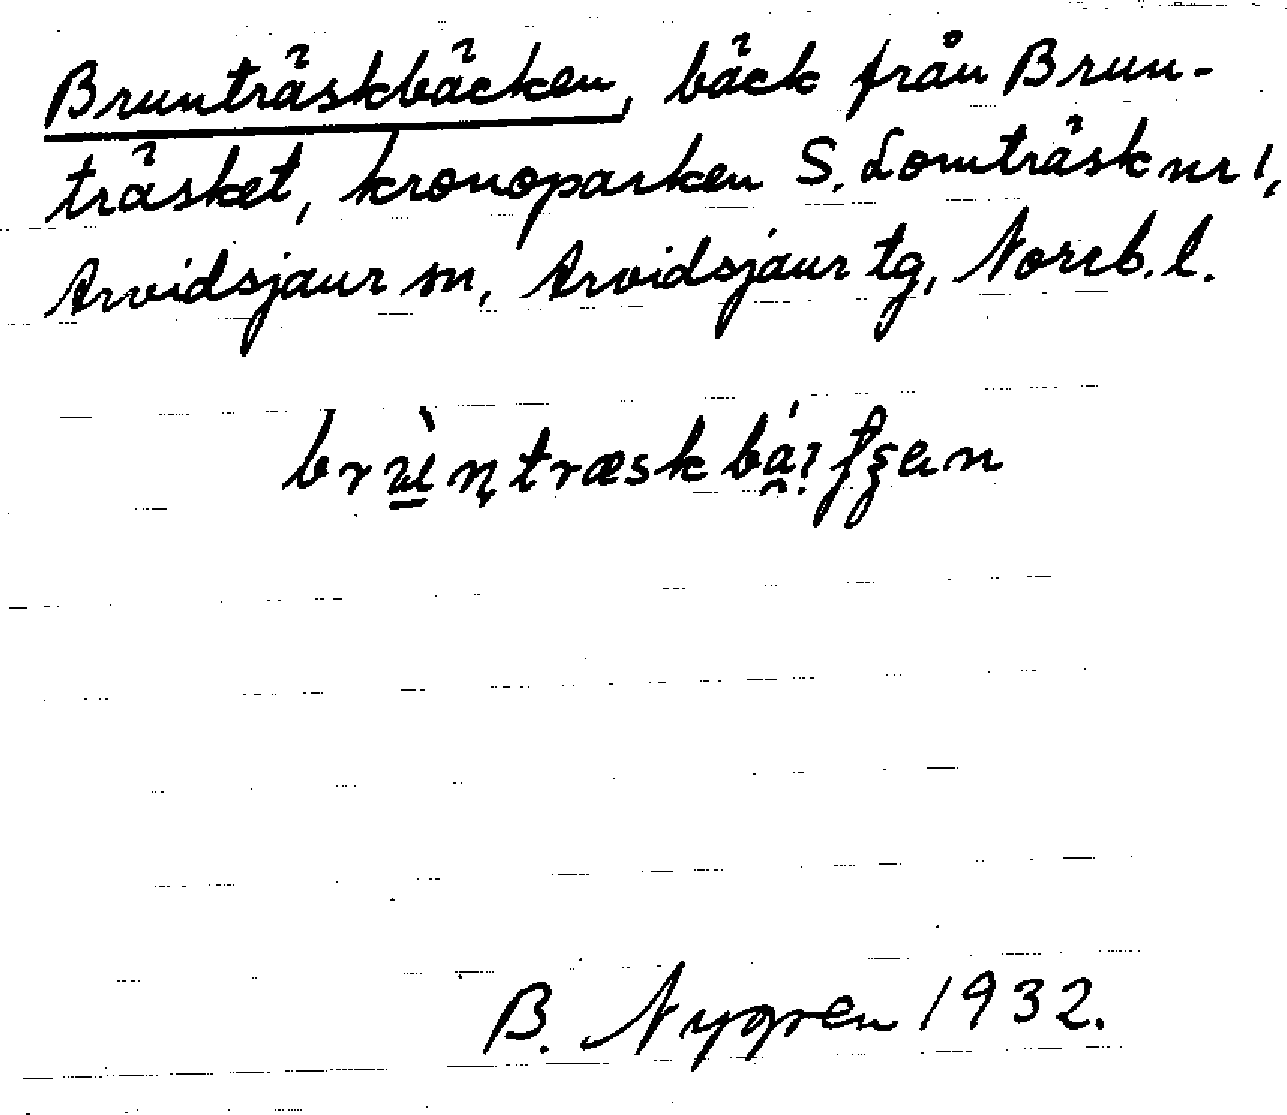 Brunträskbäcken, bäck från Brun-
träsket, kronoparken S. Lomträsk nr 1,
Arvidsjaur sn, Arvidsjaur tg, Norrb. l.
B. Nygren 1932.